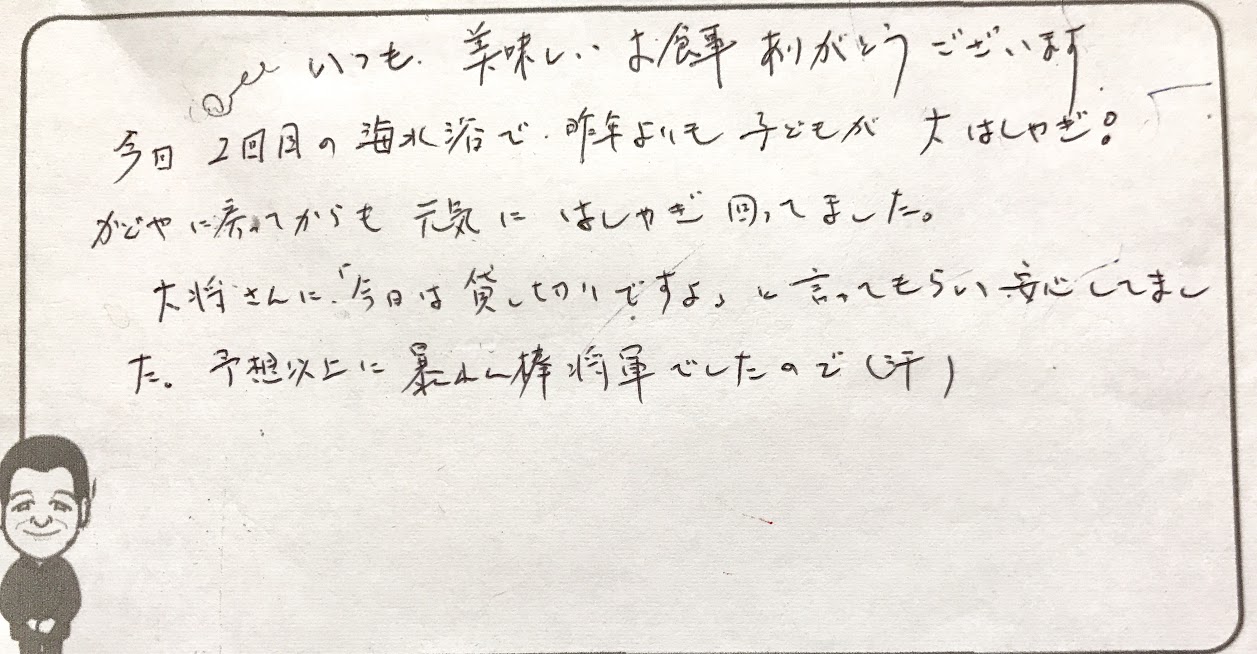 いつも、美味しいお食事ありがとうございます
今日2回目の海水浴で、昨年よりも子どもが大はしゃぎ!
かどやに戻ってからも元気にはしゃぎ回ってました。
大将さんに、「今日は貸し切りですよ」と言ってもらい安心してまし
た。予想以上に暴れん棒将軍でしたので(汗)